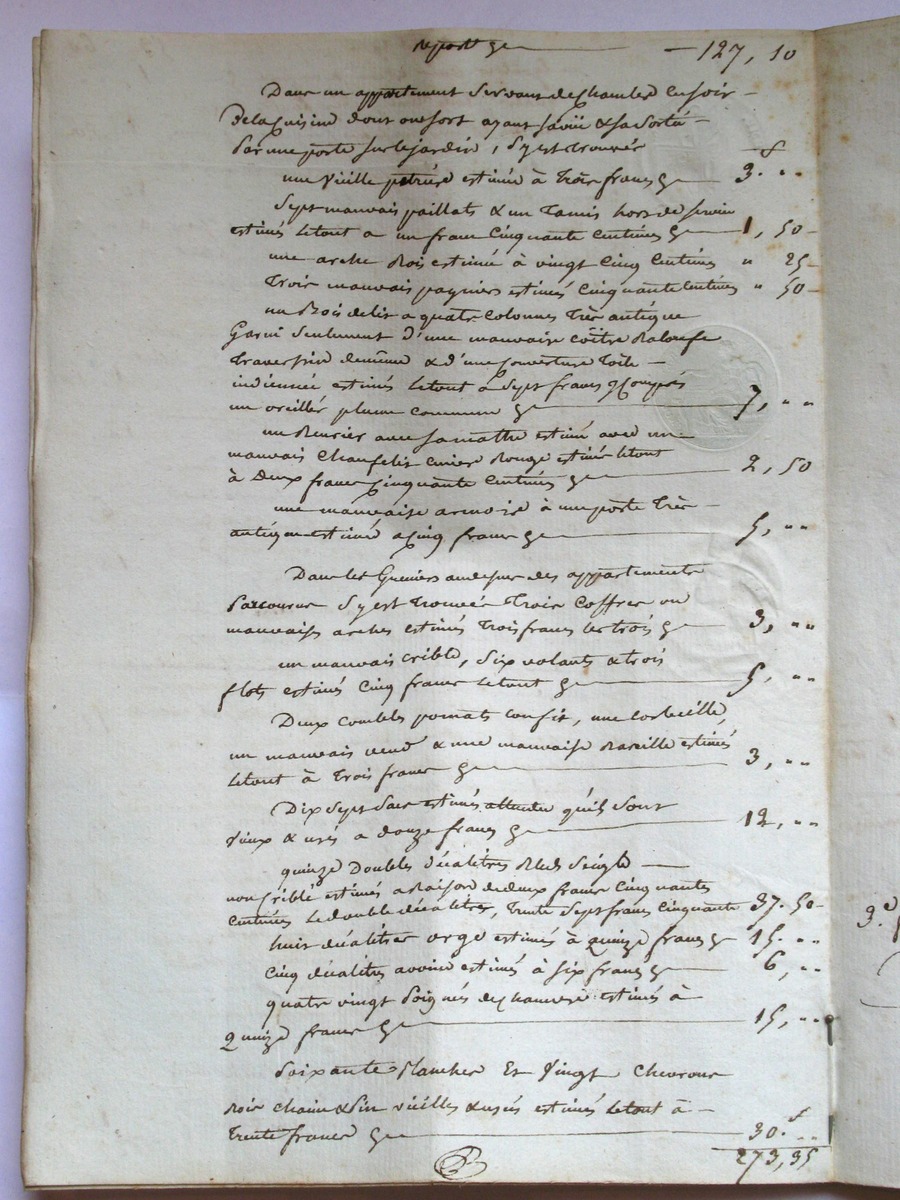 report 127, 10
Dans un appartement servant de chambre en soir
de la Cuisine dont on sort ayant sa vüe & sa sortie
par une porte sur le jardin, s'y est trouvée f
une vieille petrière estimée à trois francs 3. "
Sept mauvais paillats & un Tamis hors de servir
estimés le tout a un franc cinquante Centimes 1, 50
une arche bois estimée à vingt cinq Centimes " 25
Trois mauvais payniers estimés Cinquante Centimes " 50
un Bois de lit a quatre colonnes très antique
Garni seulement d'une mauvaise coëtre Baloufe
traversin de même & d'une Couverture toile
indiennée estimés le tout à sept francs y Compris
un oreiller plume commune 7, "
un avec sa estimé avec un
mauvais Chaufelit cuivre Rouge estimés le tout
à Deux francs Cinquante Centimes 2, 50
une mauvaise armoire à une porte très
antique estimée a cinq francs 5, "
Dans les Greniers audessus des appartements
parcourus s'y est trouvée Trois Coffres ou
mauvaises arches estimés Trois francs les trois 3, "
un mauvais crible, Six volants & trois
flots estimés Cinq francs le tout 5, "
Deux une Corbeille,
un mauvais & une mauvaise estimés
le tout à Trois francs 3, "
Dix sept sacs estimés attendu qu'ils sont
vieux & usés a douze francs 12, "
quinze Doubles décalitres Bled Seigle
non criblé estimés a Raison de deux francs Cinquantes
centimes le double décalitres, trente sept francs Cinquante 37. 50
huit décalitres orge estimés à quinze francs 15. "
Cinq décalitres avoine estimés à six francs 6, "
quatre vingt poignés de chanvre estimés à
Quinze francs 15, "
Soixante planches Et vingt Chevrons
bois chaine & pin vieilles & usés estimés le tout à f
Trente francs 30. "
273, 35